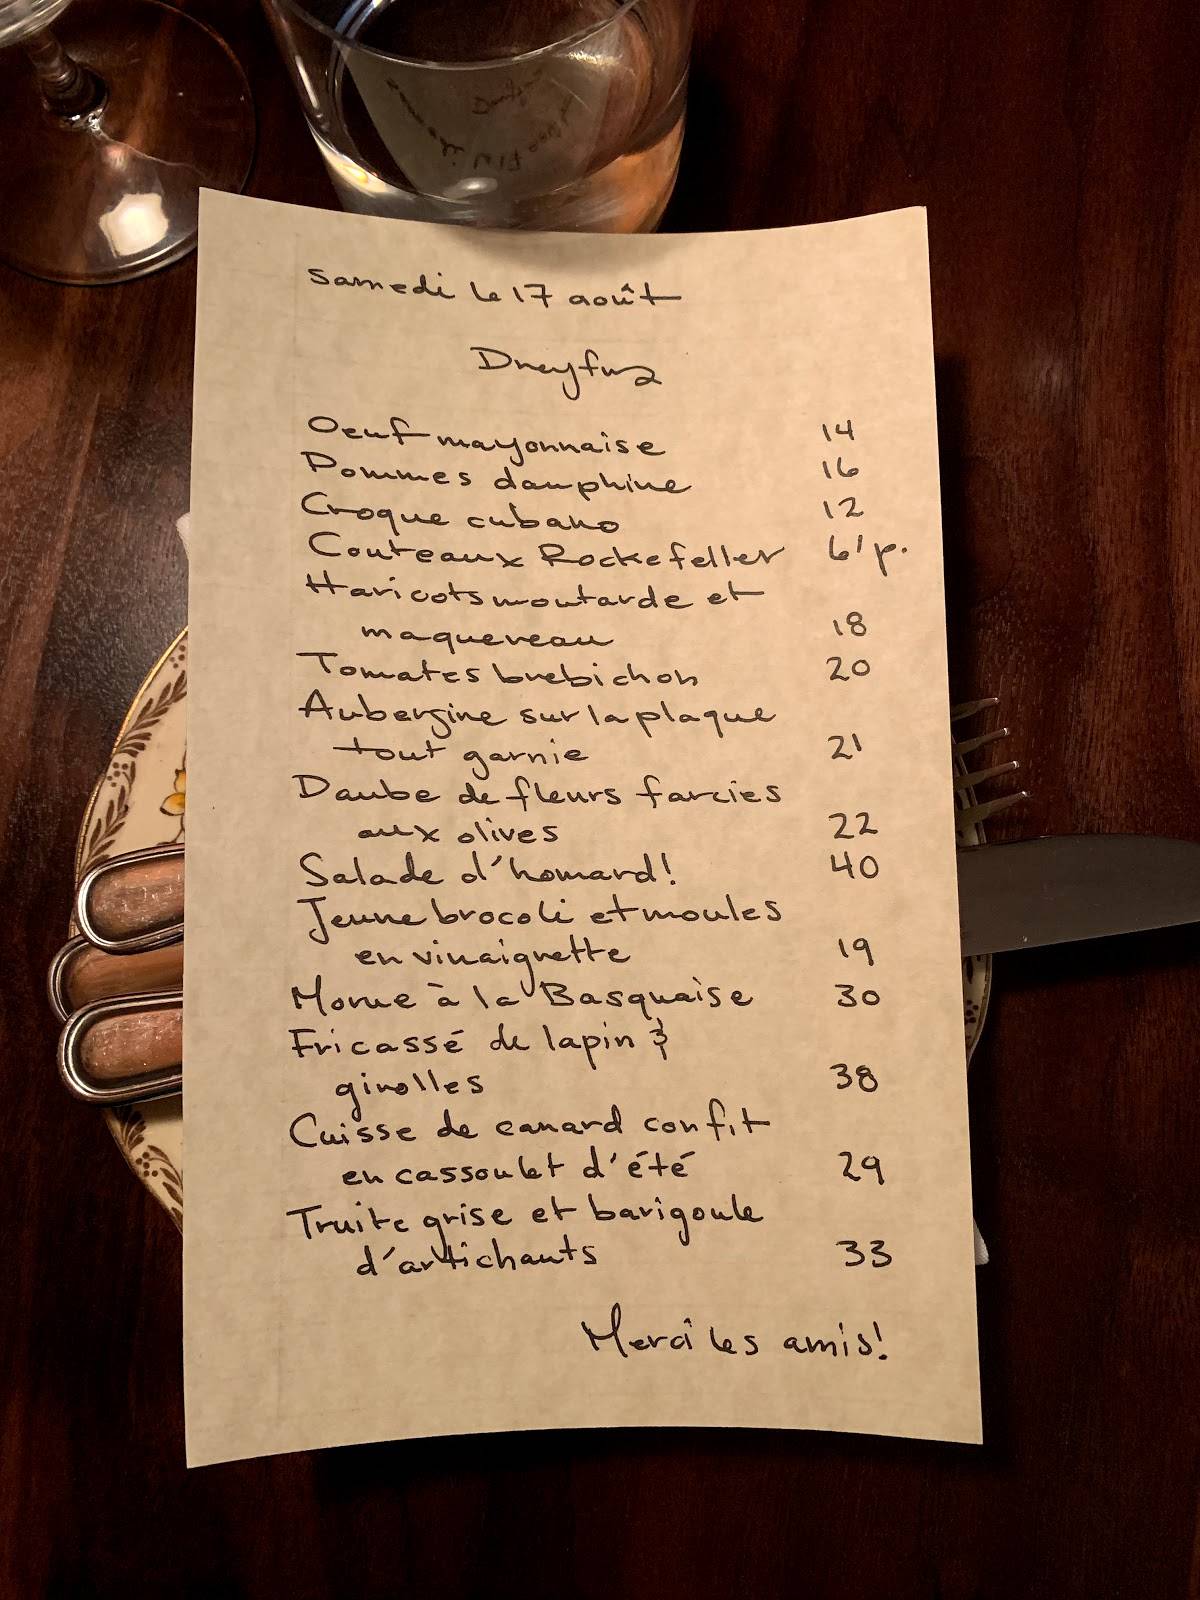 Samedi le 17 août
Dreyfus
Oeuf mayonnaise 14
Pommes dauphine 16
Croque cubano 12
Couteaux Rockefeller 6/p.
Haricots moutarde et
maquereau 18
Tomates brebichon 20
Aubergine sur la plaque
tout garnie 21
Daube de fleurs farcies
aux olives 22
Salade d'homard! 40
Jeune brocoli et moules
en vinaigrette 19
Morue à la Basquaise 30
Fricassé de lapin &
girolles 38
Cuisse de canard confit
en cassoulet d'été 29
Truite grise et barigoule
d'artichauts 33
Merci les amis!